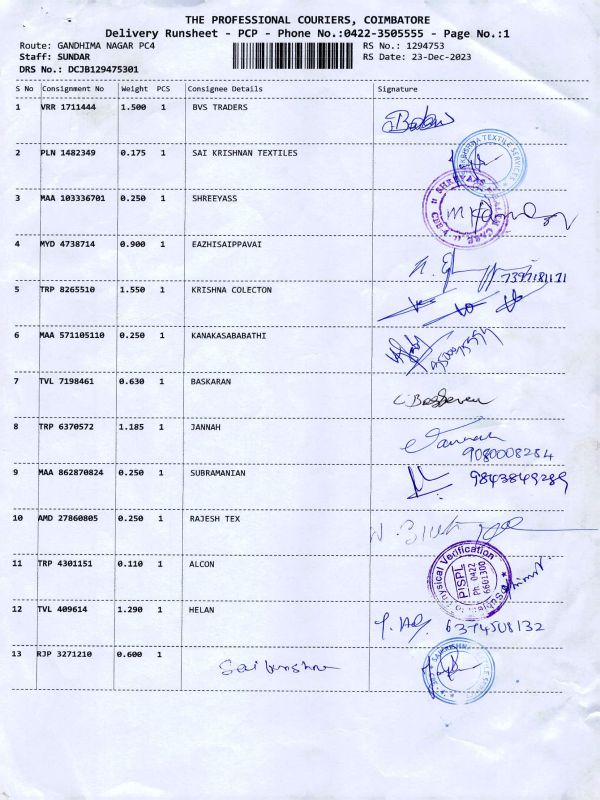 THE PROFESSIONAL COURIERS, COIMBATORE
Delivery Runsheet - PCP - Phone No.:0422-3505555 - Page No.:1
Route: GANDHIMA NAGAR PC4 RS No.: 1294753
Staff: SUNDAR RS Date: 23-Dec-2023
DRS No.: DCJB129475301
S No Consignment No Weight PCS Consignee Details Signature
1 VRR 1711444 1.500 1 BVS TRADERS
2 PLN 1482349 0.175 1 SAI KRISHNAN TEXTILES
3 MAA 103336701 0.250 1 SHREEYASS
4 MYD 4738714 0.900 1 EAZHISAIPPAVAI
5 TRP 8265510 1.550 1 KRISHNA COLECTON
6 MAA 571105110 0.250 1 KANAKASABABATHI
7 TVL 7198461 0.630 1 BASKARAN
8 TRP 6370572 1.185 1 JANNAH
9080008284
9 MAA 862870824 0.250 1 SUBRAMANIAN 9843849289
10 AMD 27860805 0.250 1 RAJESH TEX
11 TRP 4301151 0.110 1 ALCON
Physical Verification
PISPL
Ph: 0422
6601300
12 TVL 409614 1.290 1 HELAN 6374508132
13 RJP 3271210 0.600 1